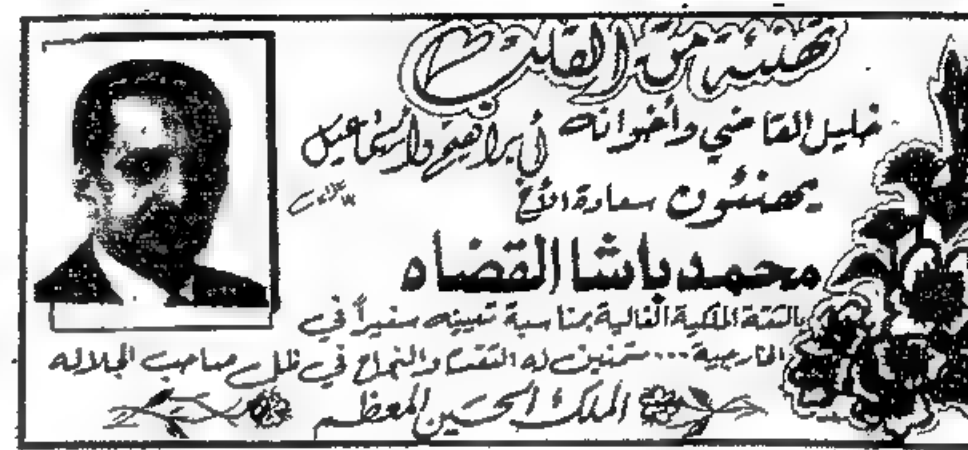 تهنئة من القلب
خليل القاضي وأخوانه أبراهيم وإسماعيل
يهنئون سعادة الأخ
محمد باشا القضاه
بالثقة الملكية الغالية بمناسبة تعيينه سفيراً في
الخارجية... متمنين له التقدم والنجاح في ظل صاحب الجلاله
الملك الحسين المعظم